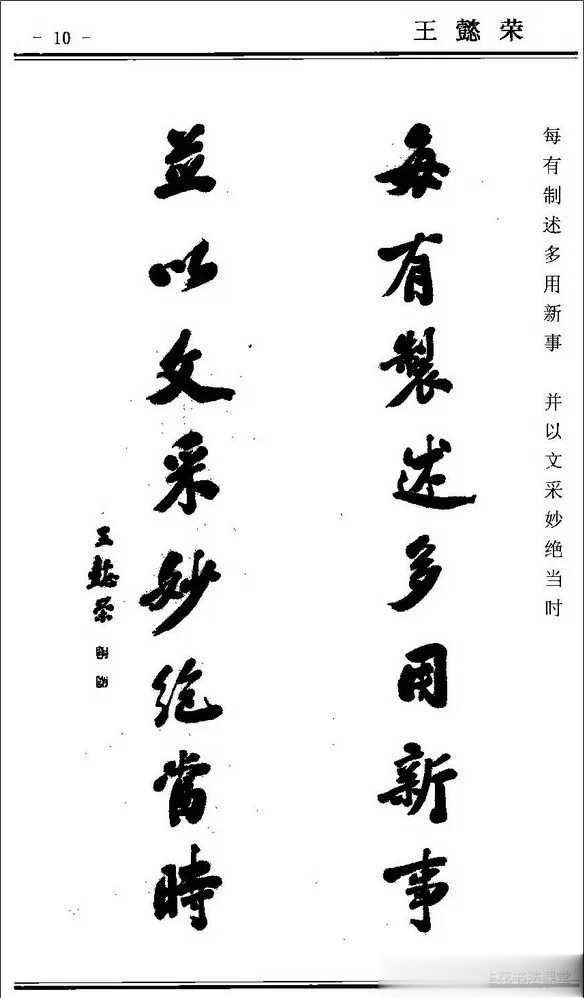 - 10 -
王懿荣
每有制述多用新事 并以文采妙绝当时
每有製述多用新事
並以文采妙絶當時
王懿榮
书法课堂